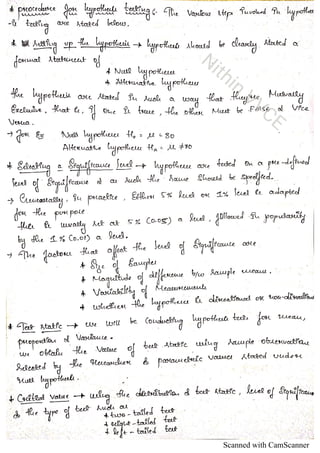 * procedure for hypothesis testing :- The various steps involved in hypothes
-is testing are stated below.
* Setting up the hypothesis → hypothesis should be clearly stated a
formal statement of
* Null hypothesis
* Alternative hypothesis
the hypothesis are stated in such a way that they're, Mutually
Exclusive, that is, if one is true, the other must be False & Vice
Versa.
→ for Ex Null hypothesis H₀ = μ = 80
Alternative hypothesis Ha = μ ≠ 80
* Selecting a significance level → hypothesis are tested on a pre-defined
level of significance & as such the same should be specified.
→ Generally, in practice, Either 5% level or 1% level is adapted
for the purpose
-this is usually set at 5% (0.05) a level, followed in popularity
by the 1% (0.01) a level.
→ The factors that affect the level of significance are
* Size of Samples
* Magnitude of difference b/w Sample means.
* Variability of Measurements
* whether the hypothesis is directional or non-directional
* Test statistic → we will be conducting hypothesis tests for mean,
proportion & Variance.
we obtain the value of test statistic using sample observation
Selected by the researcher & parametric values stated under
Null hypothesis.
* Critical value → using the distribution of test statistic, level of significance
& the type of test such as
* two-tailed test
* right-tailed test
* left-tailed test
Nithin
Scanned with CamScanner